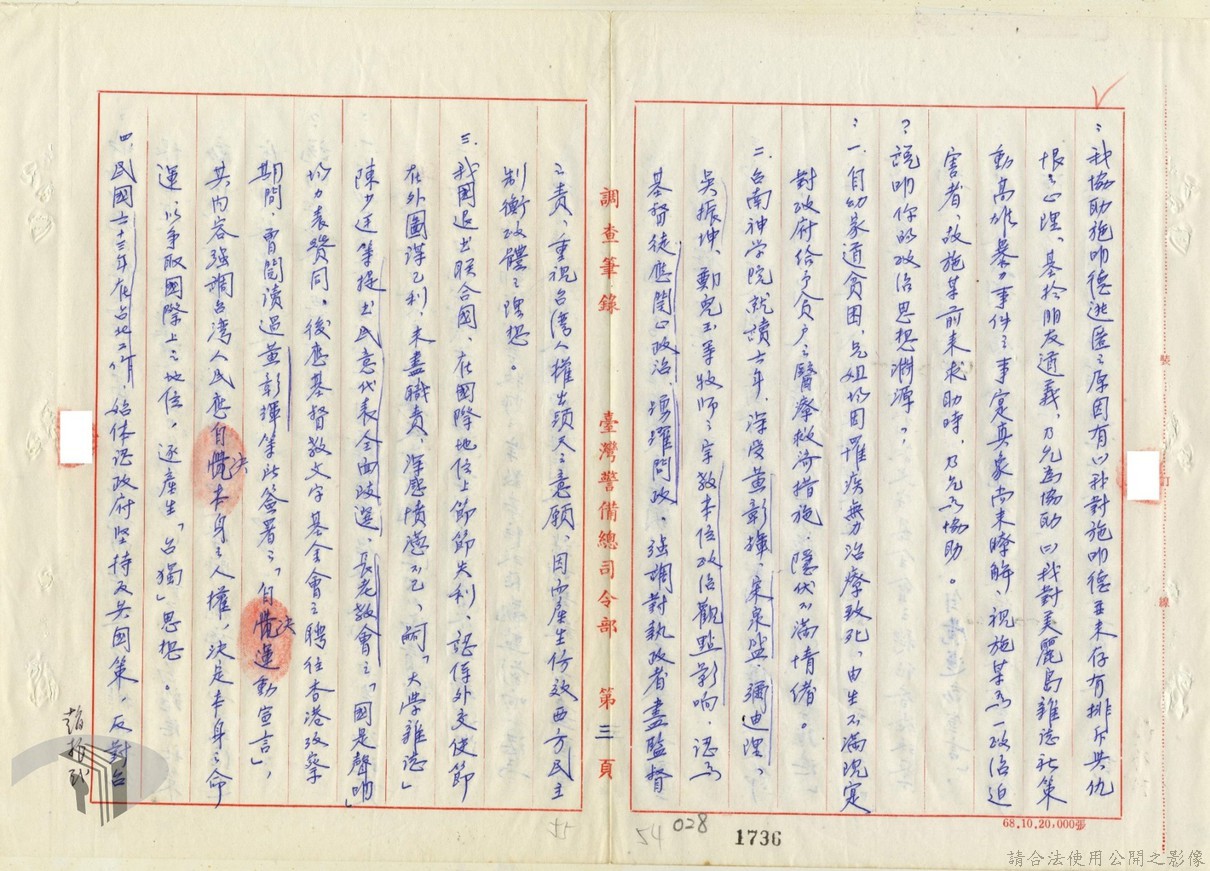 ：我協助施明德逃匿之原因有以我對施明德並未存有排斥與仇
恨之心理、基於朋友道義、乃允為協助⊖我對美麗島雜誌社策
動高雄暴力事件之事實真象尚未瞭解、視施某為一政治迫
害者、故施某前來求助時、乃允為協助。
？說明你的政治思想淵源？
：一、自幼家道貧困、兄姐均因罹疾無力治療致死、由生不滿現實
對政府給予貧戶之醫療救濟措施、隱伏不滿情緒。
二、台南神学院就讀六年、深受黃彰輝、宋泉盛、彌迪理、
吳振坤、鄭兒玉等牧師之宗教本位政治觀點影响、認為
基督徒應関心政治、踴躍問政、強調對執政者盡監督
調查筆錄　臺灣警備總司令部　第三頁
之責、重視台湾人權出頭天之意願、因而產生仿效西方民主
制衡政體之理想。
三、我國退出联合國、在國際地位上節節失利、認係外交使節
在外圖謀己利、未盡職責、深感憤懣不已、嗣「大学雜誌」
陳少廷等提出民意代表全面改選、長老教會之「國是聲明」
均力表贊同、後應基督教文字基金會之聘任香港攻察
期間、曾閱讀過黃彰輝等所簽署之「自決運動宣言」、
其內容強調台湾人民應自決本身之人權，決定本身之命
運、以爭取國際上之地位，逐產生「台獨」思想。
四、民國六十三年在台北工作、始体認政府堅持反共國策，反對台
68.10.20,000張
裝
訂
線
54
028
1736
55
請合法使用公開之影像